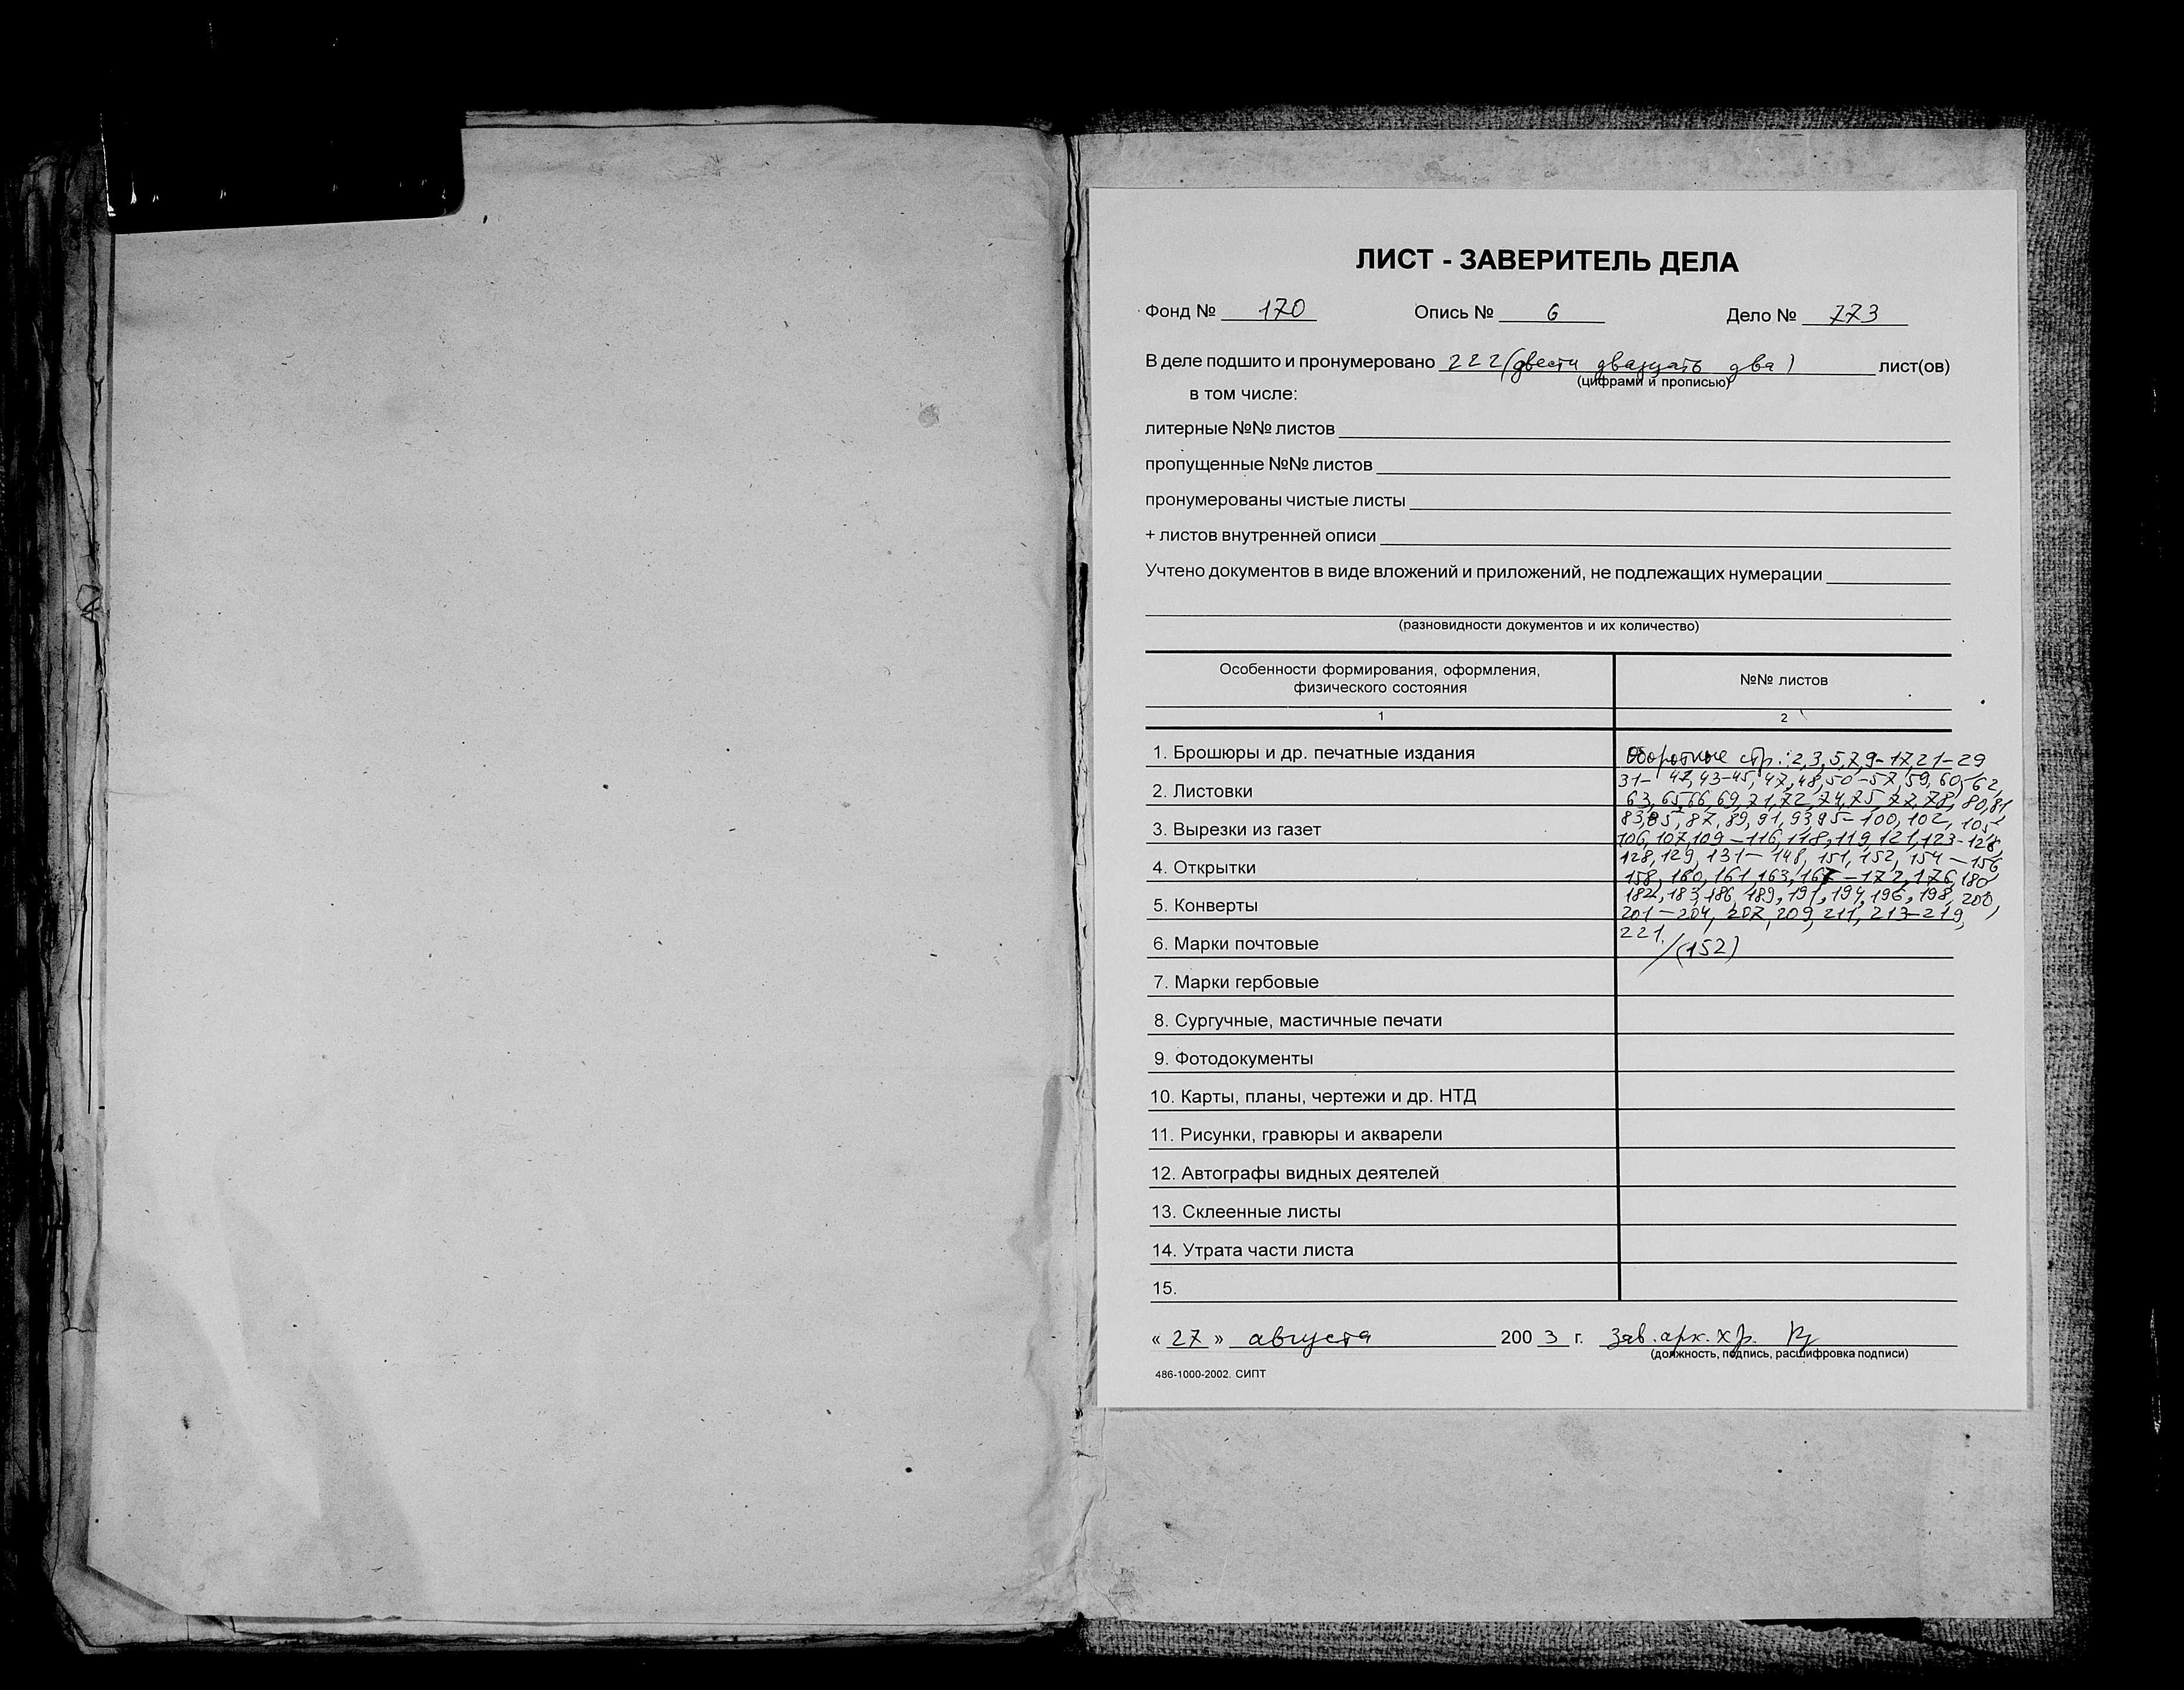 ЛИСТ - ЗАВЕРИТЕЛЬ ДЕЛА
Фонд № 170 Опись № 6 Дело № 773
В деле подшито и пронумеровано 222 (двести двадцать два) лист(ов)
(цифрами и прописью)
в том числе:
литерные №№ листов
пропущенные №№ листов
пронумерованы чистые листы
+ листов внутренней описи
Учтено документов в виде вложений и приложений, не подлежащих нумерации
(разновидности документов и их количество)
Особенности формирования, оформления, физического состояния №№ листов
1 2
1. Брошюры и др. печатные издания Оборотные стр.: 2,3,5,7,9-17,21-29
31- 42,43-45,47,48,50-57,59,60,62,
2. Листовки
63,65,66,69,71,72,74,75,77,78,80,81
83,85,87,89,91,93,95-100,102,105,
3. Вырезки из газет
106,107,109-116,118,119,121,123-128,
128,129,131-148,151,152,154-156
4. Открытки
158,160,161,163,167-172,176,180,
182,183,186,189,191,194,196,198,200,
5. Конверты
201-204,207,209,211,213-219,
221.
6. Марки почтовые
/(152)
7. Марки гербовые
8. Сургучные, мастичные печати
9. Фотодокументы
10. Карты, планы, чертежи и др. НТД
11. Рисунки, гравюры и акварели
12. Автографы видных деятелей
13. Склеенные листы
14. Утрата части листа
15.
« 27 » августа 2003 г. зав. арх. хр.
(должность, подпись, расшифровка подписи)
486-1000-2002. СИПТ